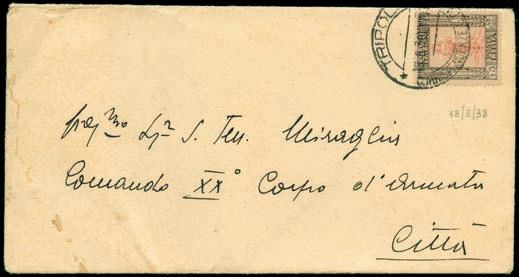 TRIPOLI
18/8/38
Preg.mo Sig.r S. Ten. Miraglia
Comando XX° Corpo d'Armata
Città